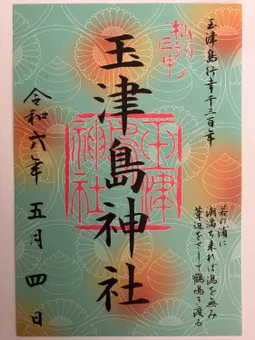 玉津島行幸千三百年
玉津島神社
玉津島神社
令和六年 五月 四日
若の浦に
潮満ち来れば潟を無み
葦辺をさして鶴鳴き渡る